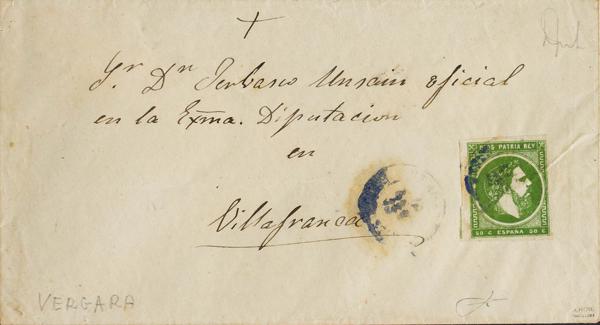 Sr. Dn. Gerbasio Unsain oficial
en la Exma. Diputacion
en
Villafranca
DIOS PATRIA REY
50 C ESPAÑA 50 C
VERGARA